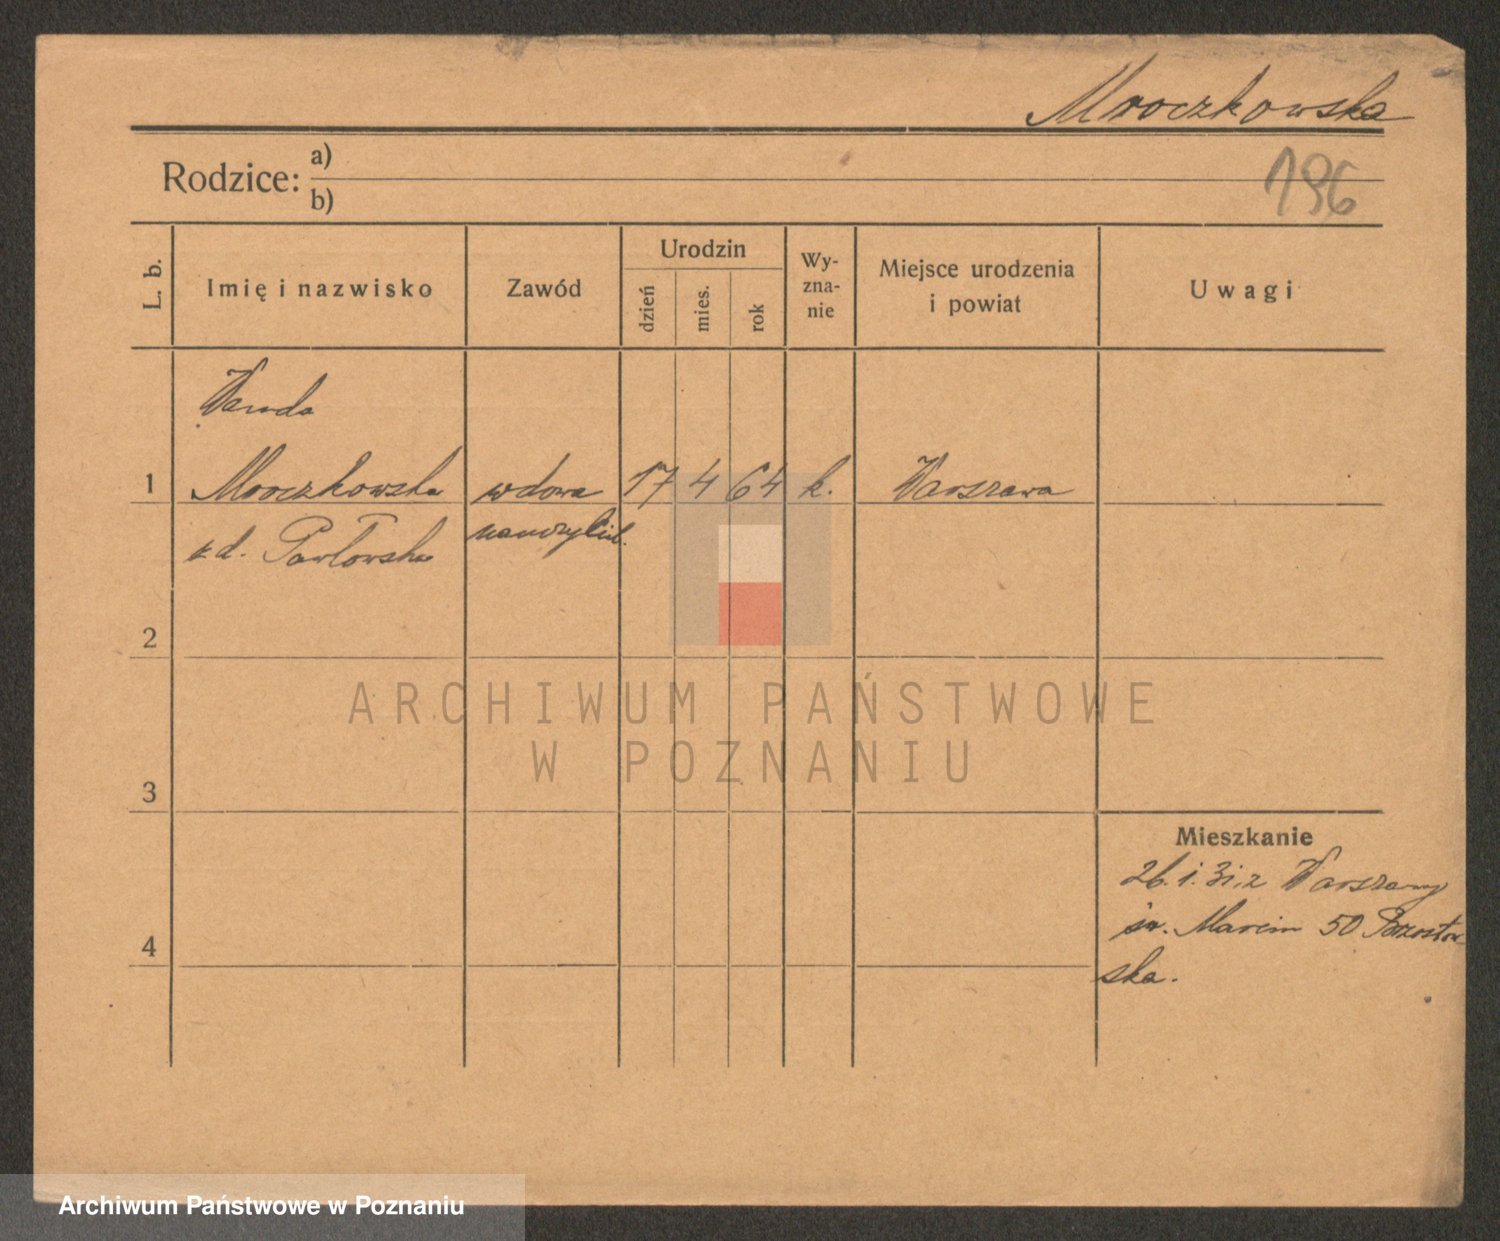 Mroczkowska
Rodzice: a)
b)
196
L. b.
Imię i nazwisko
Zawód
Urodzin
dzień
mies.
rok
Wy-
zna-
nie
Miejsce urodzenia
i powiat
Uwagi
Wanda
1 Mroczkowska wdowa 17 4 64 k. Warszawa
z d. Pawłowska nauczyciel.
2
3
4
Mieszkanie
26.1.31 z Warszawy
św. Marcin 50 Brzostow
ska.
ARCHIWUM PAŃSTWOWE
W POZNANIU
Archiwum Państwowe w Poznaniu